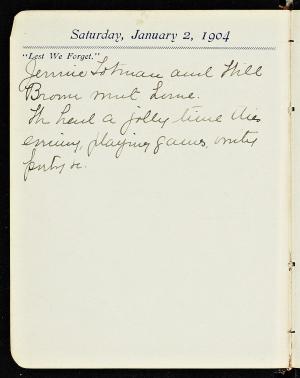 Saturday, January 2, 1904
"Lest We Forget."
Jennie Totman and Will
Brown went home.
We had a jolly time this
evening, playing games,
party &c.